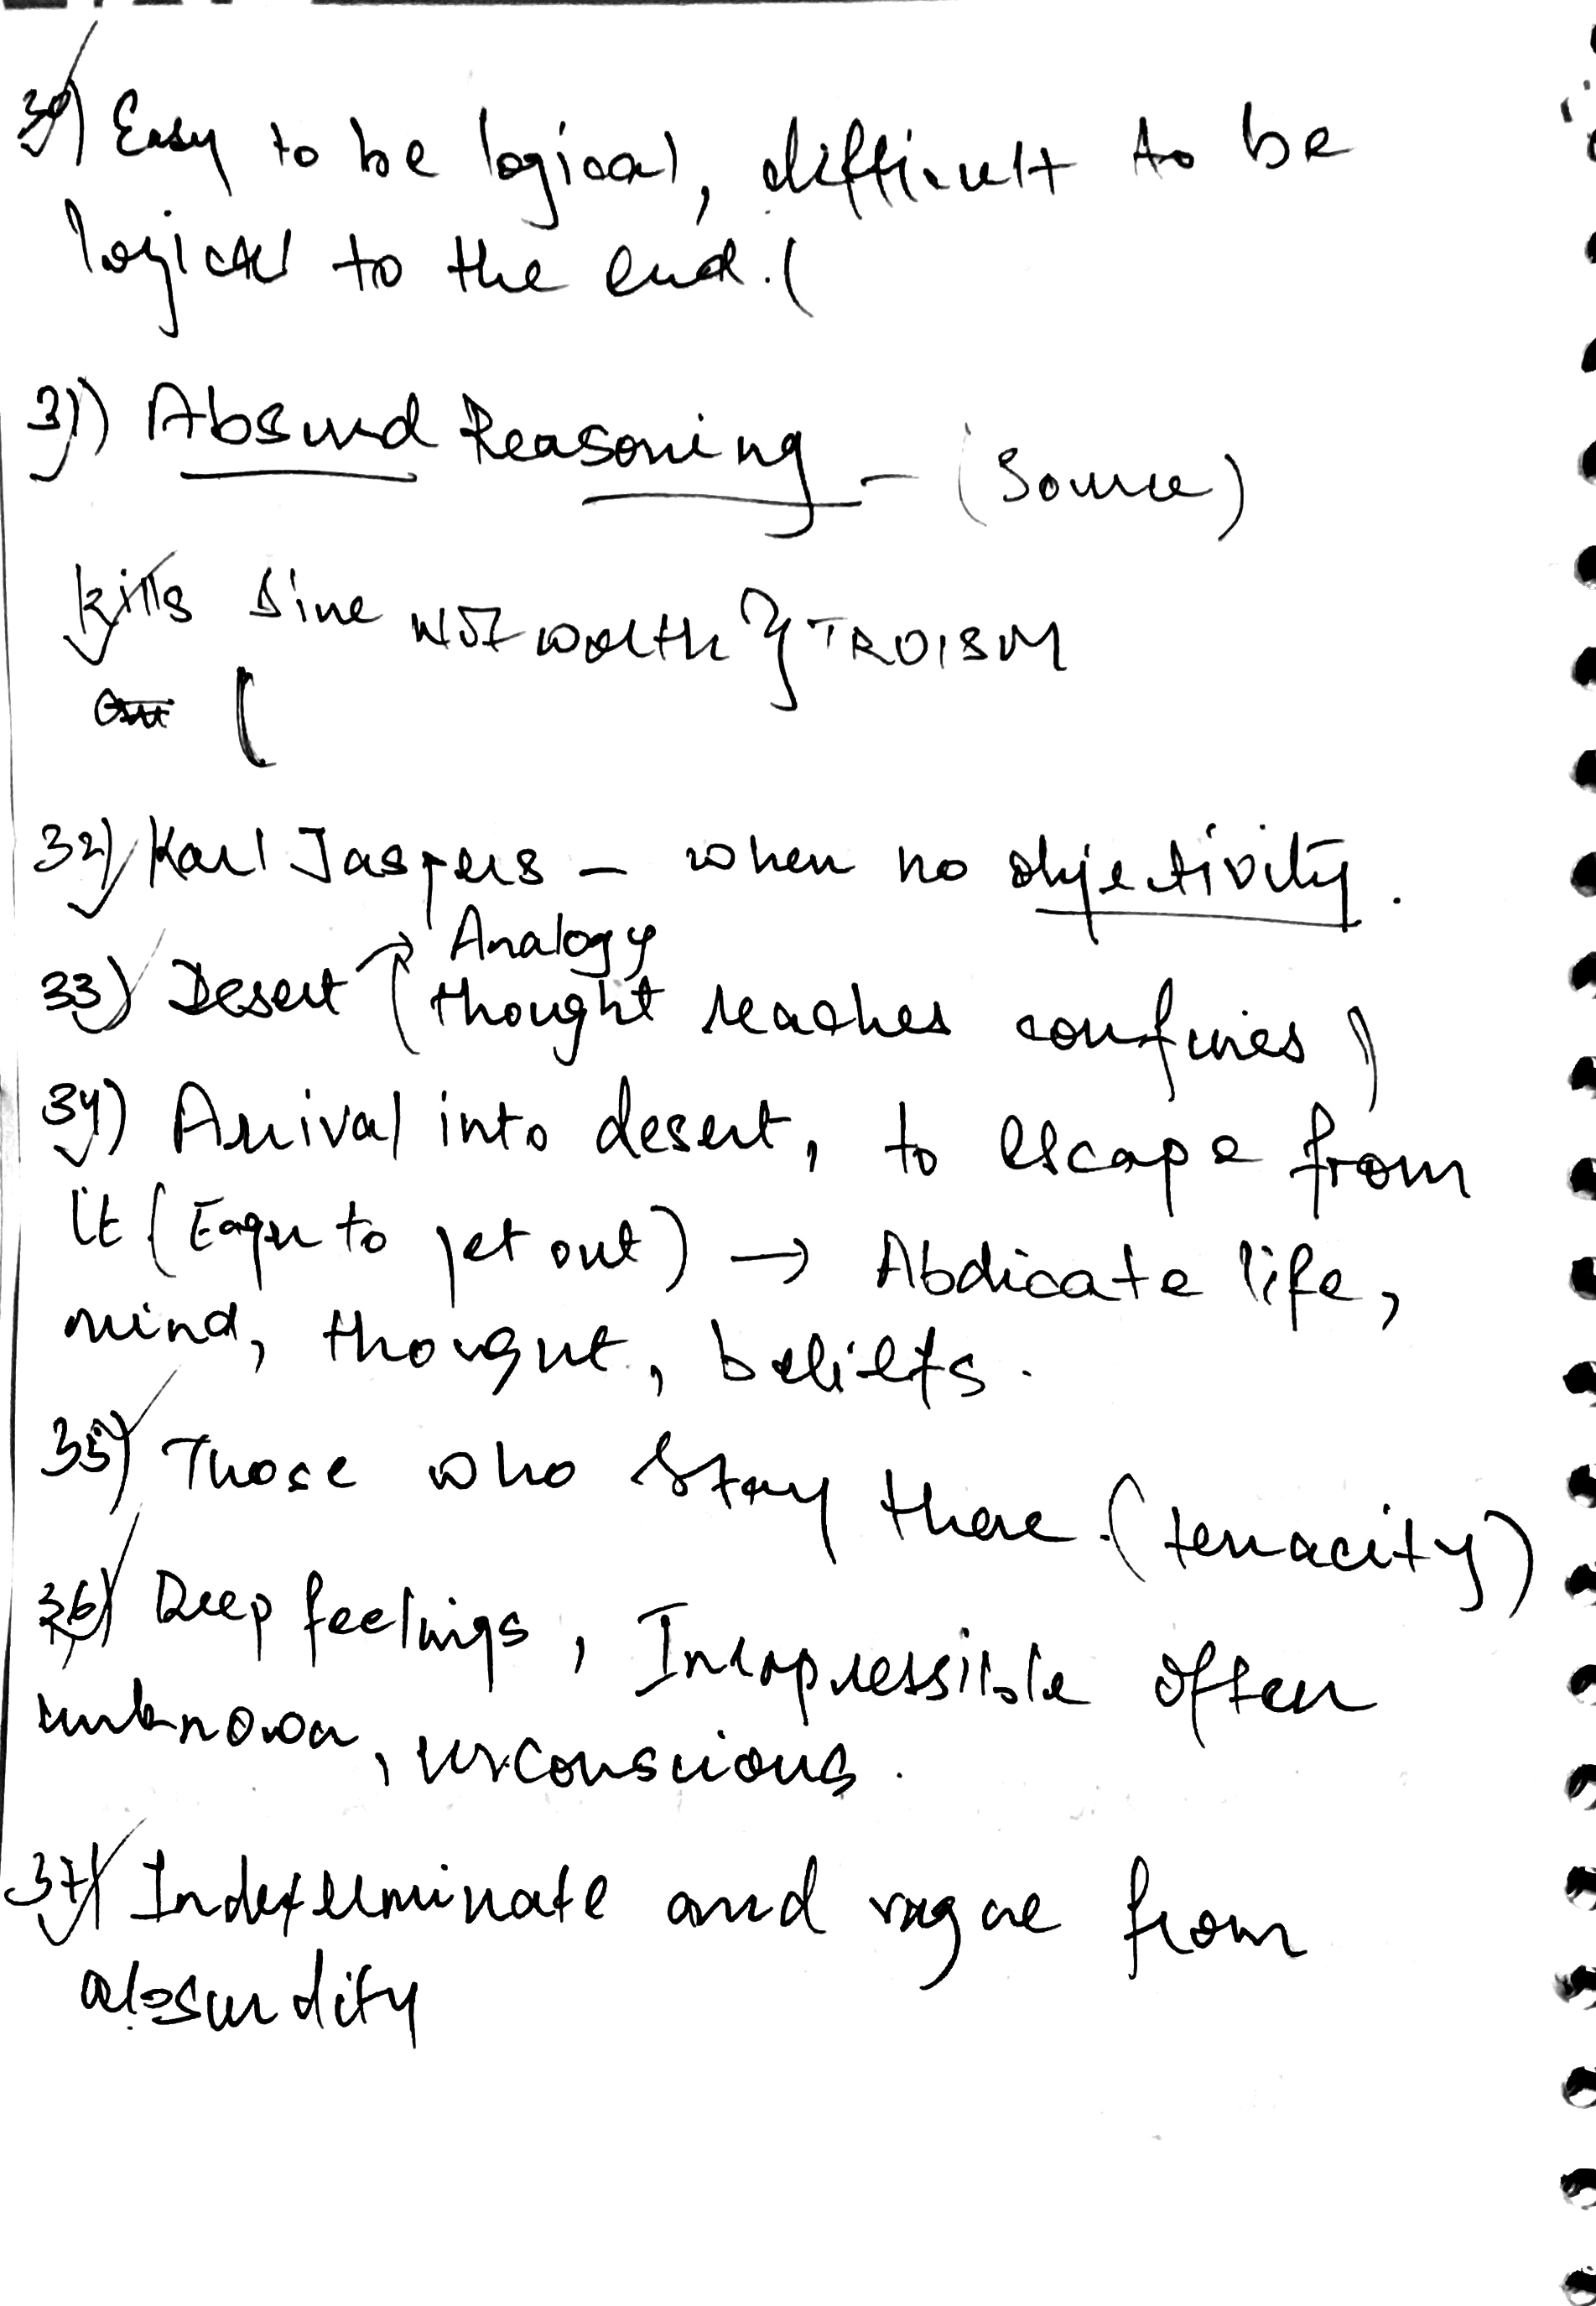 30) Easy to be logical, difficult to be
logical to the end. (
31) Absurd Reasoning - (Source)
kills Sine NOT WORTH } TROISM
(
32) Karl Jaspers - when no objectivity.
Analogy
33) Desert → (thought reaches confines)
34) Arrival into desert, to escape from
it (Eager to get out) → Abdicate life,
mind, thought, beliefs.
35) Those who stay there. (tenacity)
36) Deep feelings, Inexpressible often
unknown, unconscious.
37) Indeterminate and vague from
absurdity